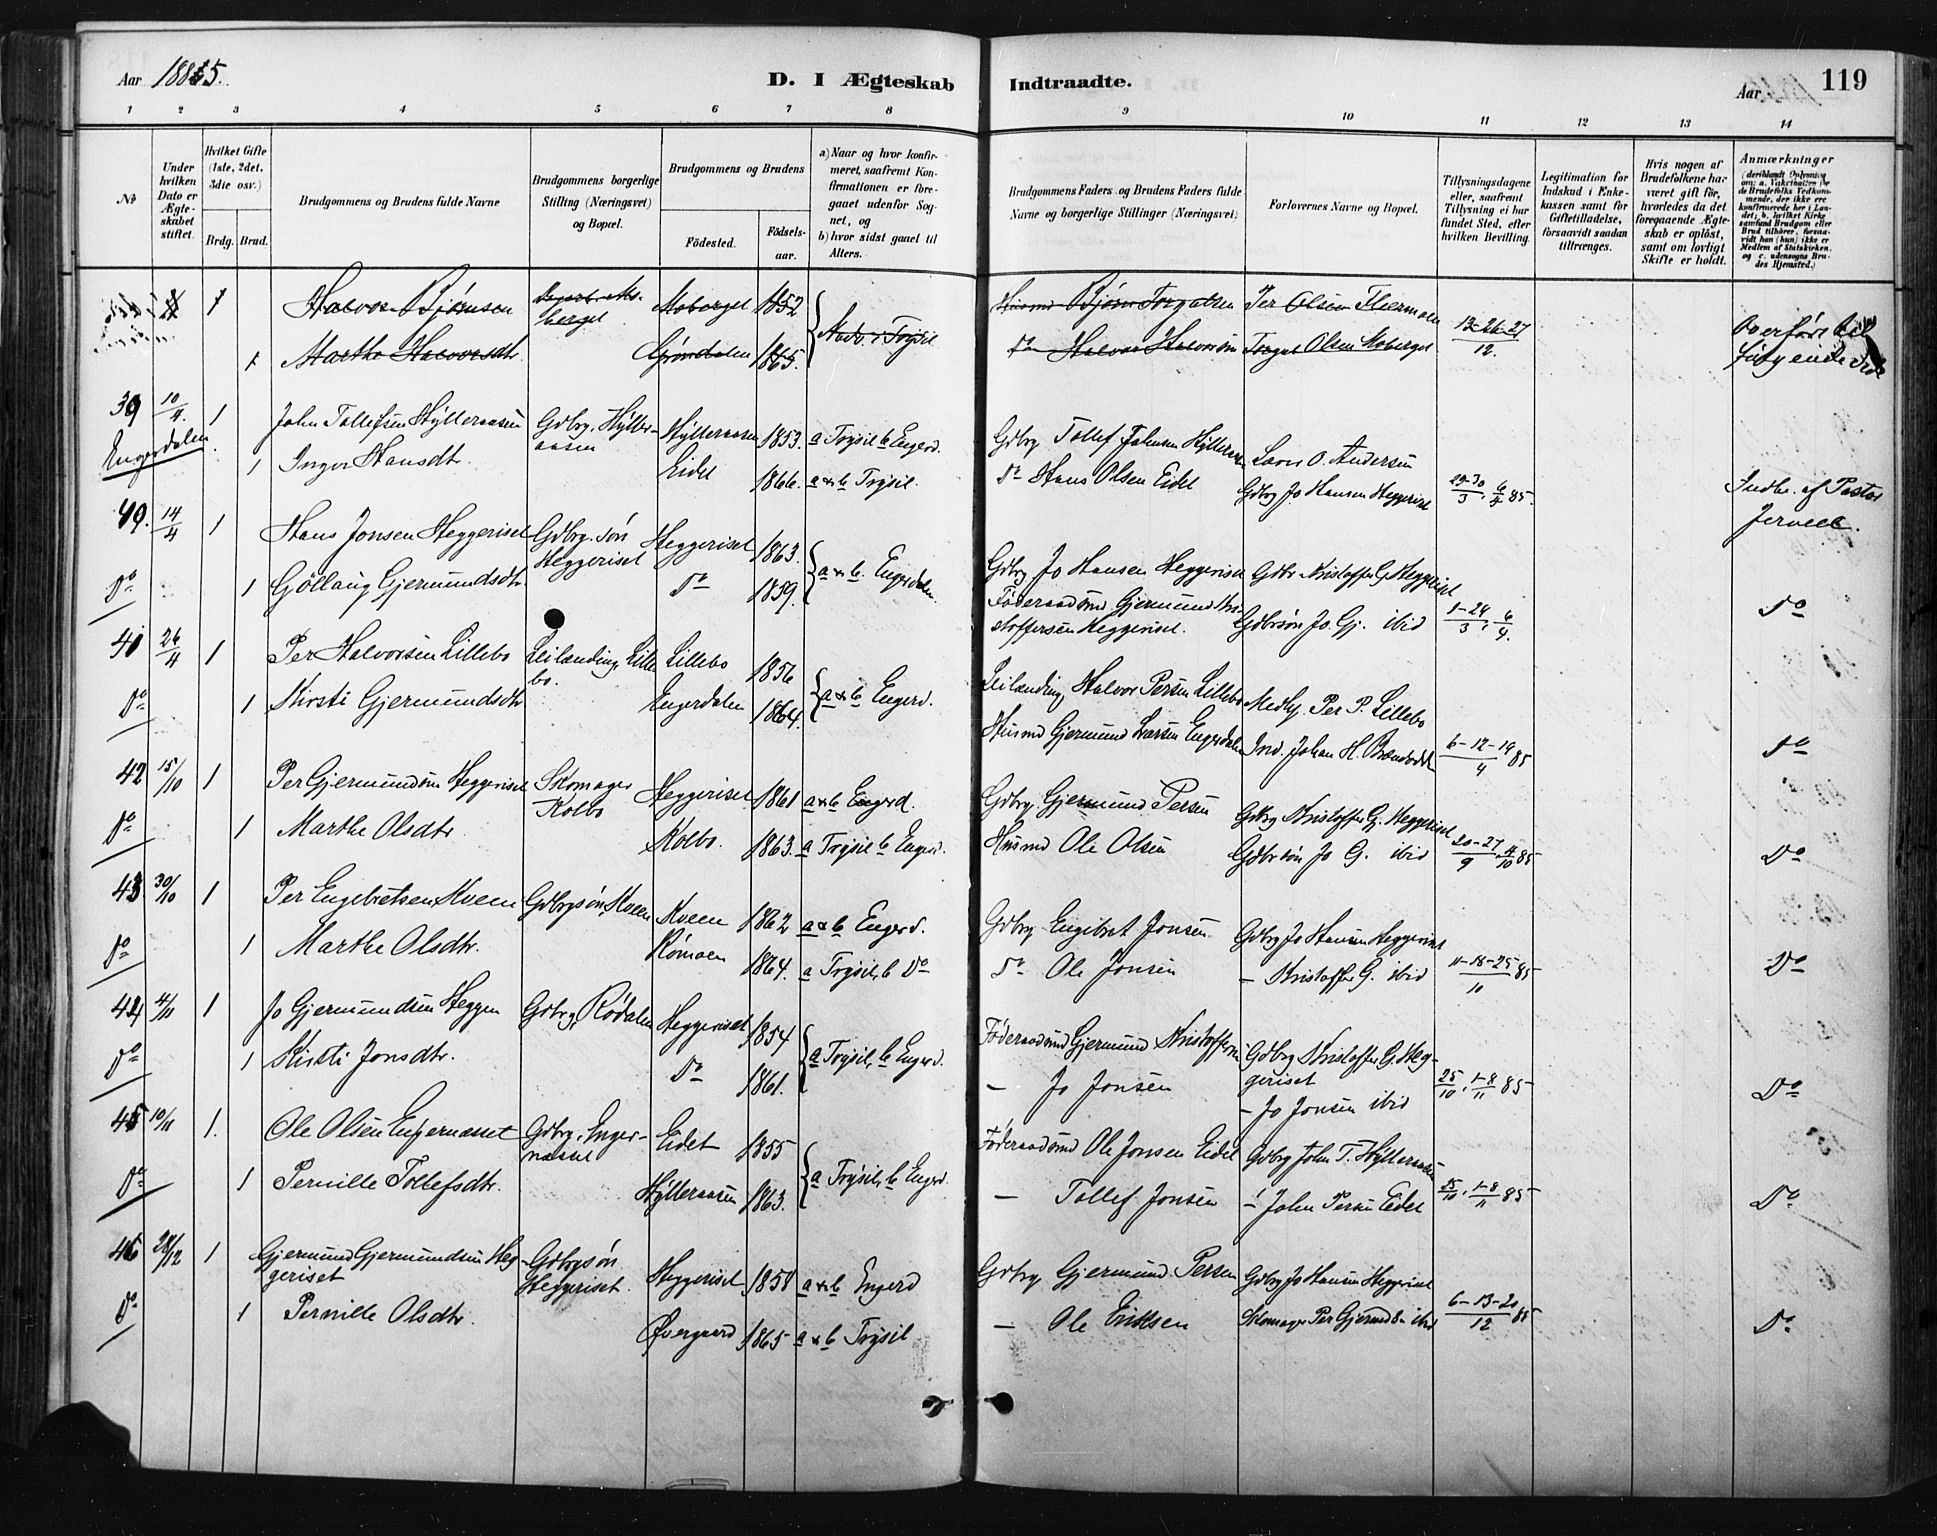 Aar 1885.
D. I Ægteskab Indtraadte.
Aar
119
1 2 3 4 5 6 7 8 9 10 11 12 13 14
No
Under hvilken Dato er Ægteskabet stiftet.
Hvilket Gifte (1ste, 2det, 3die osv.)
Brdg. Brud.
Brudgommens og Brudens fulde Navne
Brudgommens borgerlige Stilling (Næringsvei) og Bopæl.
Brudgommens og Brudens
Fødested.
Fødselsaar.
a) Naar og hvor konfirmeret, saafremt Konfirmationen er foregaaet udenfor Sognet, og
b) hvor sidst gaaet til Alters.
Brudgommens Faders og Brudens Faders fulde Navne og borgerlige Stillinger (Næringsvei)
Forlovernes Navne og Bopæl.
Tillysningsdagene eller, saafremt Tillysning ei har fundet Sted, efter hvilken Bevilling.
Legitimation for Indskud i Enkekassen samt for Giftetilladelse, forsaavidt saadan tiltrænges.
Hvis nogen af Brudefolkene har været gift før, hvorledes da det foregaaende Ægteskab er opløst, samt om lovligt Skifte er holdt.
Anmærkninger
(deriblandt Oplysning om: a. Vakcination for de Brudefolks Vedkommende, der ikke ere konfirmerede her i Landet; b. hvilket Kirkesamfund Brudgom eller Brud tilhører, forsaavidt han (hun) ikke er Medlem af Statskirken, og c. udensogns Brudes Hjemsted.)
1 Halvor Bjørnsen Moberget 1852 Bjørn Torgalsen Per Olsen Flermoen 13-26-27/12. Overført til
1 Marthe Halvorsdtr. Grøndalen 1865. Halvor Halvorsen Torgal Olsen Moberget
39 10/4. 1 John Tollefsen Hylleraasen Gdbrg. Hylleraasen Hylleraasen 1853. a Trysil b Engerd. Gdbrg Tollef Johnsen Hylleraasen Lars O. Andersen
Engerdalen. 1 Inger Hansdtr. Eidet 1866. a & b Trysil. Do Hans Olsen Eidet Gdbrg Jo Hansen Heggeriset 29-30/3, 6/4 85. Indbr. af Pastor Jervell.
40. 14/4 1 Hans Jonsen Heggeriset Gdbrg. søn Heggeriset Heggeriset 1863. a & b. Engerdalen. Gdbrg Jo Hansen Heggeriset Gdbr Kristoffer G. Heggeriset
Do 1 Gøllaug Gjermundsdtr Do 1859. Føderaadsmd Gjermund Kristoffersen Heggeriset. Gdbrsøn Jo. Gj. ibid Do
41 26/4 1 Per Halvorsen Lillebo Leilænding, Lillebo. Lillebo 1856 a & b Engerd. Leilænding Halvor Persen Lillebo Medhj. Per P. Lillebo
Do 1 Kirsti Gjermundsdtr Engerdalen 1864. Husmd Gjermund Larsen Engerdalen Ind. Johan H. 6-12-19/4 85 Do
42 15/10 1 Per Gjermundsen Heggeriset Skomager Kolbo Heggeriset 1861 a & b Engerd. Gdbrg. Gjermund Persen Gdbrg Kristoffer G. Heggeriset
Do 1 Marthe Olsdtr. Kolbo. 1863. a Trysil b Engerd. Husmd Ole Olsen Gdbrsøn Jo G. ibid 20-27/9, 4/10 85 Do
43. 30/10 1 Per Engebretsen Kveen Gdbrgsøn, Kveen Kveen 1862 a & b Engerd. Gdbrg Engebret Jonsen Gdbrg Jo Hansen Heggeriset
Do 1 Marthe Olsdtr. Rømoen 1864. a Trysil, b Do Do Ole Jonsen – Kristoffer G. ibid 11-18-25/10 85 Do
44 4/11 1 Jo Gjermundsen Heggen Gdbrg, Rødalen Heggeriset 1854 a Trysil, b Engerd. Føderaadsmd Gjermund Kristoffersen Gdbrg Kristoffer G. Heggeriset
Do 1 Kirsti Jonsdtr. Do 1861. – Jo Jonsen – Jo Jonsen ibid 25/10, 1-8/11 85 Do
45 10/11 1. Ole Olsen Engernæsset Gdbrg, Engernæsset Eidet 1855 a Trysil, b Engerd. Føderaadsmd Ole Jonsen Eidet Gdbrg John T. Hylleraasen
Do 1 Pernille Tollefsdtr. Hylleraasen 1863. – Tollef Jonsen – John Persen Eidet 25/10, 1-8/11 85 Do
46 28/12 1 Gjermund Gjermundsen Heggeriset Gdbrgsøn Heggeriset. Heggeriset 1858 a & b Engerd Gdbrg Gjermund Persen Gdbrg Jo Hansen Heggeriset
Do 1 Pernille Olsdtr. Øvergaard 1865 a & b Trysil – Ole Eriksen Skomager Per Gjermds. ibid 6-13-20/12 85 Do